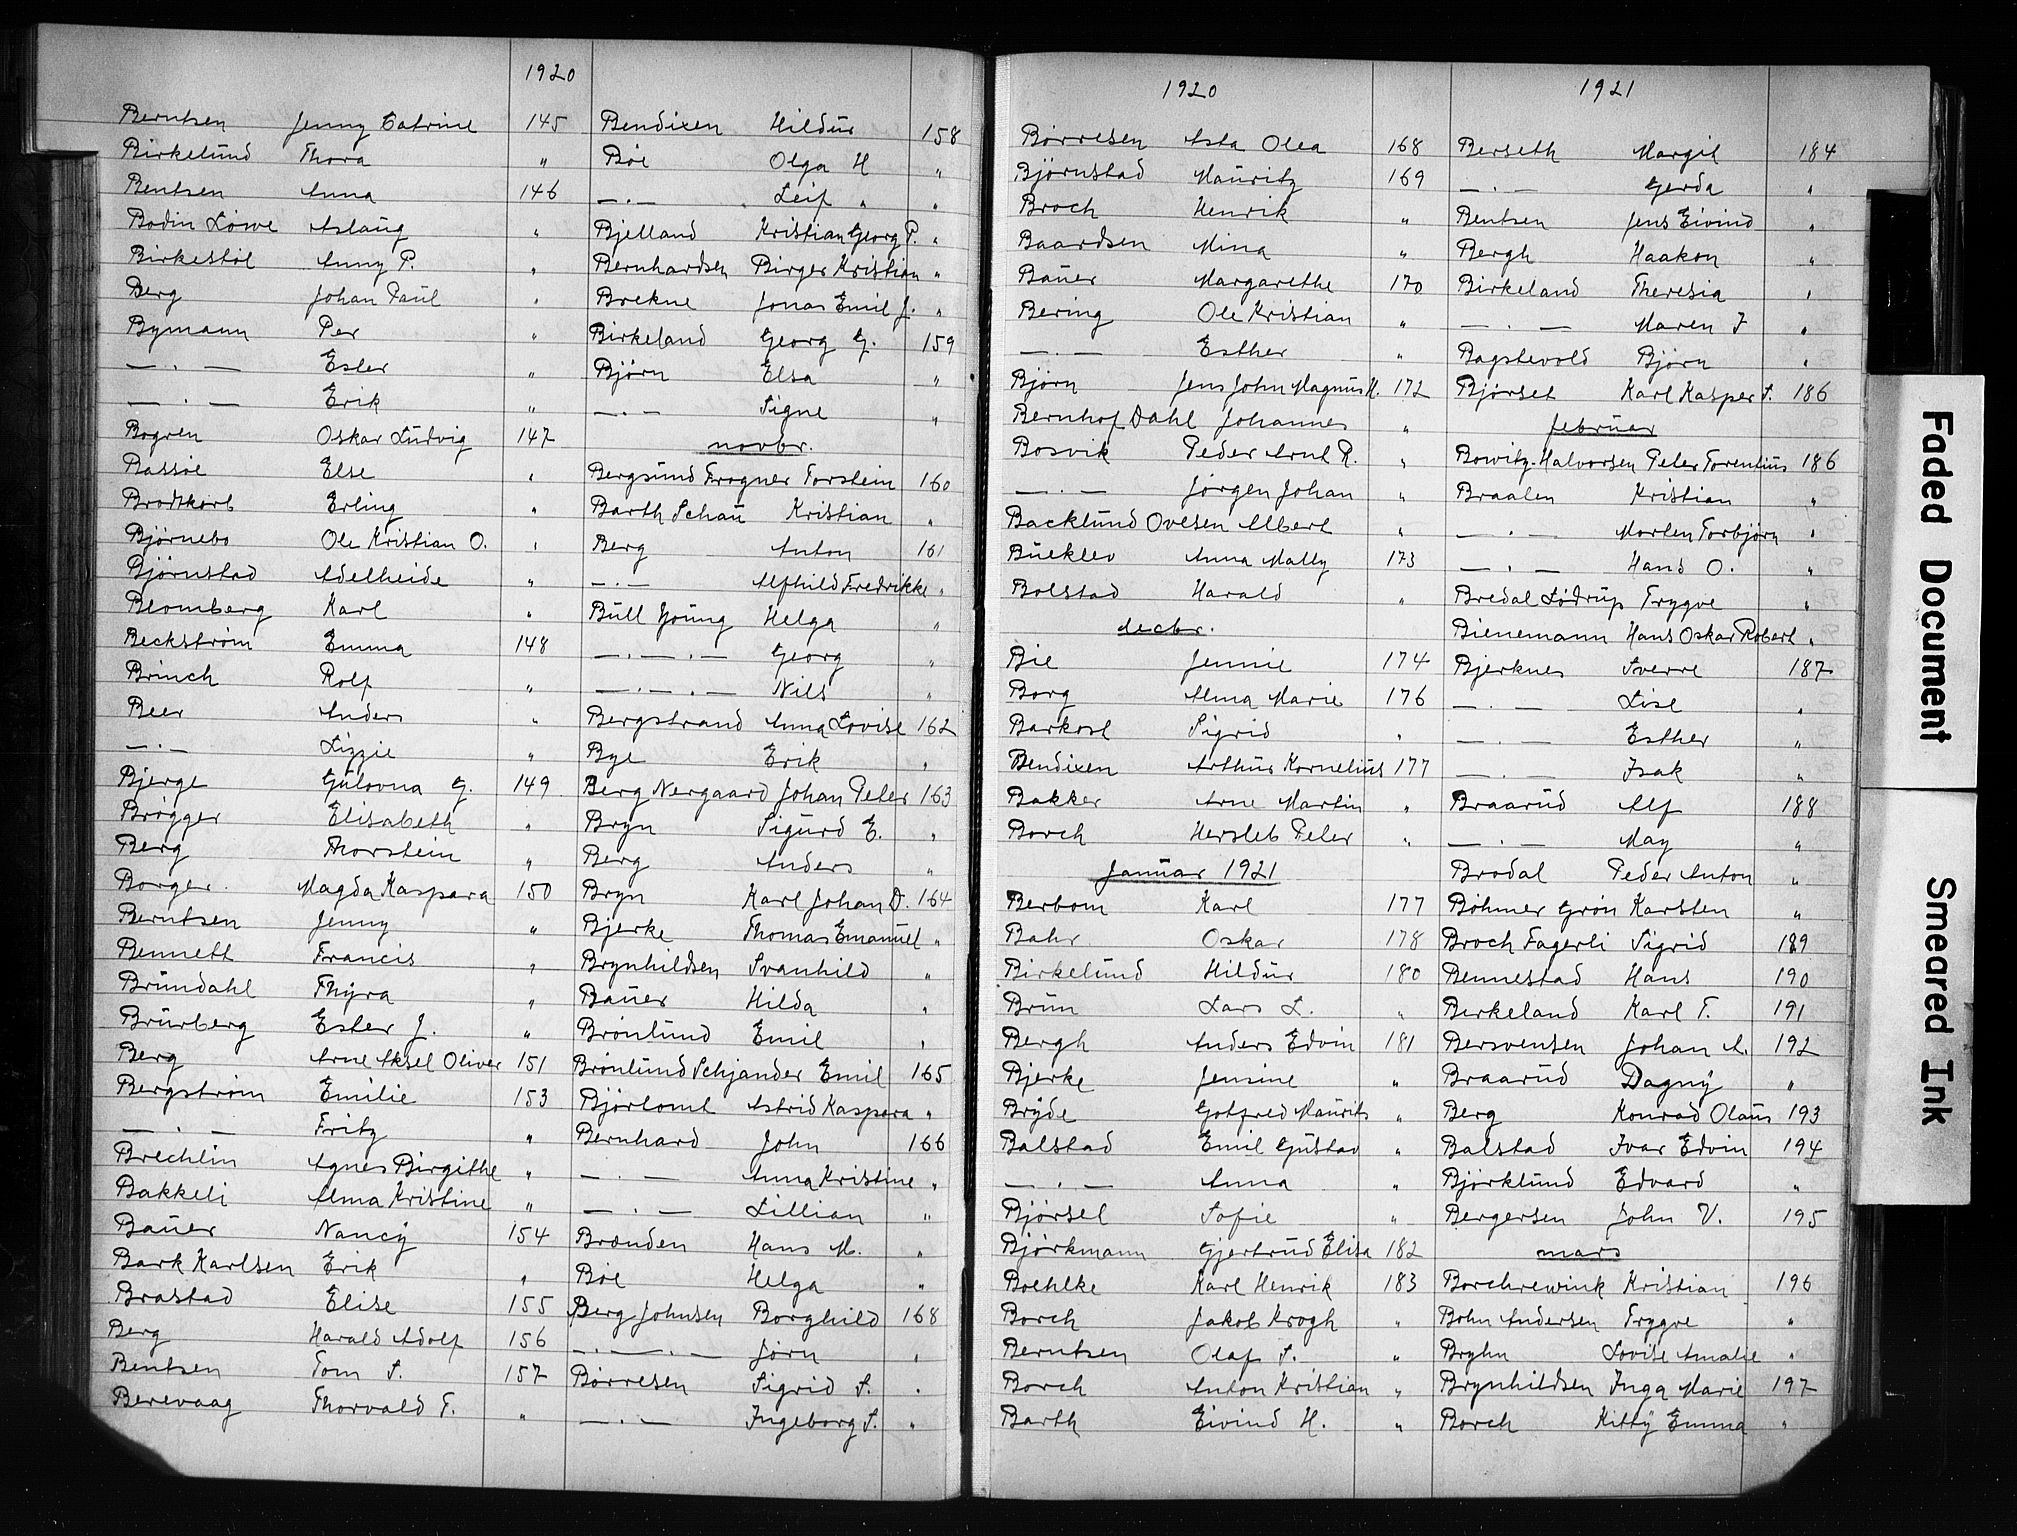 1920
Berntsen Jenny Catrine 145
Birkelund Thora "
Bentsen Anna 146
Bodin Löwe Aslaug "
Birkestöl Anny P. "
Berg Johan Paul "
Bymann Per "
— . — Ester "
— . — Erik "
Bogren Oskar Ludvig 147
Bassøe Else "
Brodtkorb Erling "
Bjørnebo Ole Kristian O. "
Bjørnstad Adelheide "
Blomberg Karl "
Beckstrøm Emma 148
Brinch Rolf "
Beer Anders "
— . — Lizzie "
Bjerge Gulovna G. 149
Brøgger Elisabeth "
Berg Thorstein "
Borger Magda Kaspara 150
Berntsen Jenny "
Bennett Francis "
Brundahl Thyra "
Brurberg Ester J. "
Berg Arne Aksel Oliver 151
Bergstrøm Emilie 153
— . — Fritz "
Brechlin Agnes Birgithe "
Bakkeli Alma Kristine "
Bauer Nancy 154
Bark Karlsen Erik "
Brastad Elise 155
Berg Harald Adolf 156
Bentsen Tom S. 157
Berevaag Thorvald T. "
Bendixen Hildur 158
Bøe Olga H "
— . — Leif " "
Bjelland Kristian Georg P. "
Bernhardsen Birger Kristian "
Brekne Jonas Emil J. "
Birkeland Georg G. 159
Bjørn Elsa "
— . — Signe "
novbr.
Bergsund Frogner Torstein 160
Barth Schau Kristian "
Berg Anton 161
— . — Alfhild Fredrikke "
Bull Young Helga "
— . — . — Georg "
— . — . — Nils "
Bergstrand Anna Lovise 162
Bye Erik "
Berg Nergaard Johan Peter 163
Bryn Sigurd E. "
Berg Anders "
Bryn Karl Johan D. 164
Bjerke Thomas Emanuel "
Brynhildsen Svanhild "
Bauer Hilda "
Brønlund Emil "
Brønlund Schjander Emil 165
Bjørlomt Astrid Kaspara "
Bernhard John 166
— . — Anna Kristine "
— . — Lillian "
Brænden Hans M. "
Bøe Helga "
Berg Johnsen Borghild 168
— . — . — Jørn "
Børresen Sigrid S. "
— . — Ingeborg S. "
1920
Børresen Asta Olea 168
Bjørnstad Mauritz 169
Broch Henrik "
Baardsen Mina "
Bauer Margarethe 170
Bering Ole Kristian "
— . — Esther "
Bjørn Jens John Magnus H. 172
Bernhof Dahl Johannes "
Bosvik Peder Arnt R. "
— . — Jørgen Johan "
Backlund Ovesen Albert "
Bueklev Anna Mally 173
Bolstad Harald "
decbr.
Bie Jennie 174
Borg Alma Marie 176
Barkost Sigrid "
Bendixen Arthur Kornelius 177
Bakker Arne Martin "
Borch Hersleb Peter "
Januar 1921
Berbom Karl 177
Bahr Oskar 178
Birkelund Hildur 180
Brun Lars L. "
Bergh Anders Edvin 181
Bjerke Jensine "
Bryde Gotfred Maurits "
Balstad Emil Gustav "
— . — Anna "
Bjørset Sofie "
Bjørkmann Gjertrud Elisa 182
Boehlke Karl Henrik 183
Borch Jakob Krogh "
Berntsen Olaf S. "
Borch Anton Kristian "
Barth Eivind H. "
1921
Berseth Margit 184
— . — Gerda "
Bentsen Jens Eivind "
Bergh Haakon "
Birkeland Theresia "
— . — Maren J "
Bagstevold Bjørn "
Bjørset Karl Kasper S. 186
februar
Bowitz-Halvorsen Peter Torentius 186
Braaten Kristian "
— . — Morten Torbjørn "
— . — Hans O. "
Bredal Lødrup Trygve "
Bienemann Hans Oskar Robert "
Bjerknes Sverre 187
— . — Lise "
— . — Esther "
— . — Isak "
Braarud Alf 188
— . — May "
Brodal Peder Anton "
Bøhmer Grøn Karsten "
Broch Fagerli Sigrid 189
Bennestad Hans 190
Birkeland Karl T. 191
Bersvensen Johan A. 192
Braarud Dagny "
Berg Konrad Olaus 193
Balstad Ivar Edvin 194
Bjørklund Edvard "
Bergersen John V. 195
mars
Borchrewink Kristian 196
Bohn Andersen Trygve "
Bryhn Lovise Amalie "
Brynhildsen Inga Marie 197
Borch Kitty Emma "
Faded Document
Smeared Ink